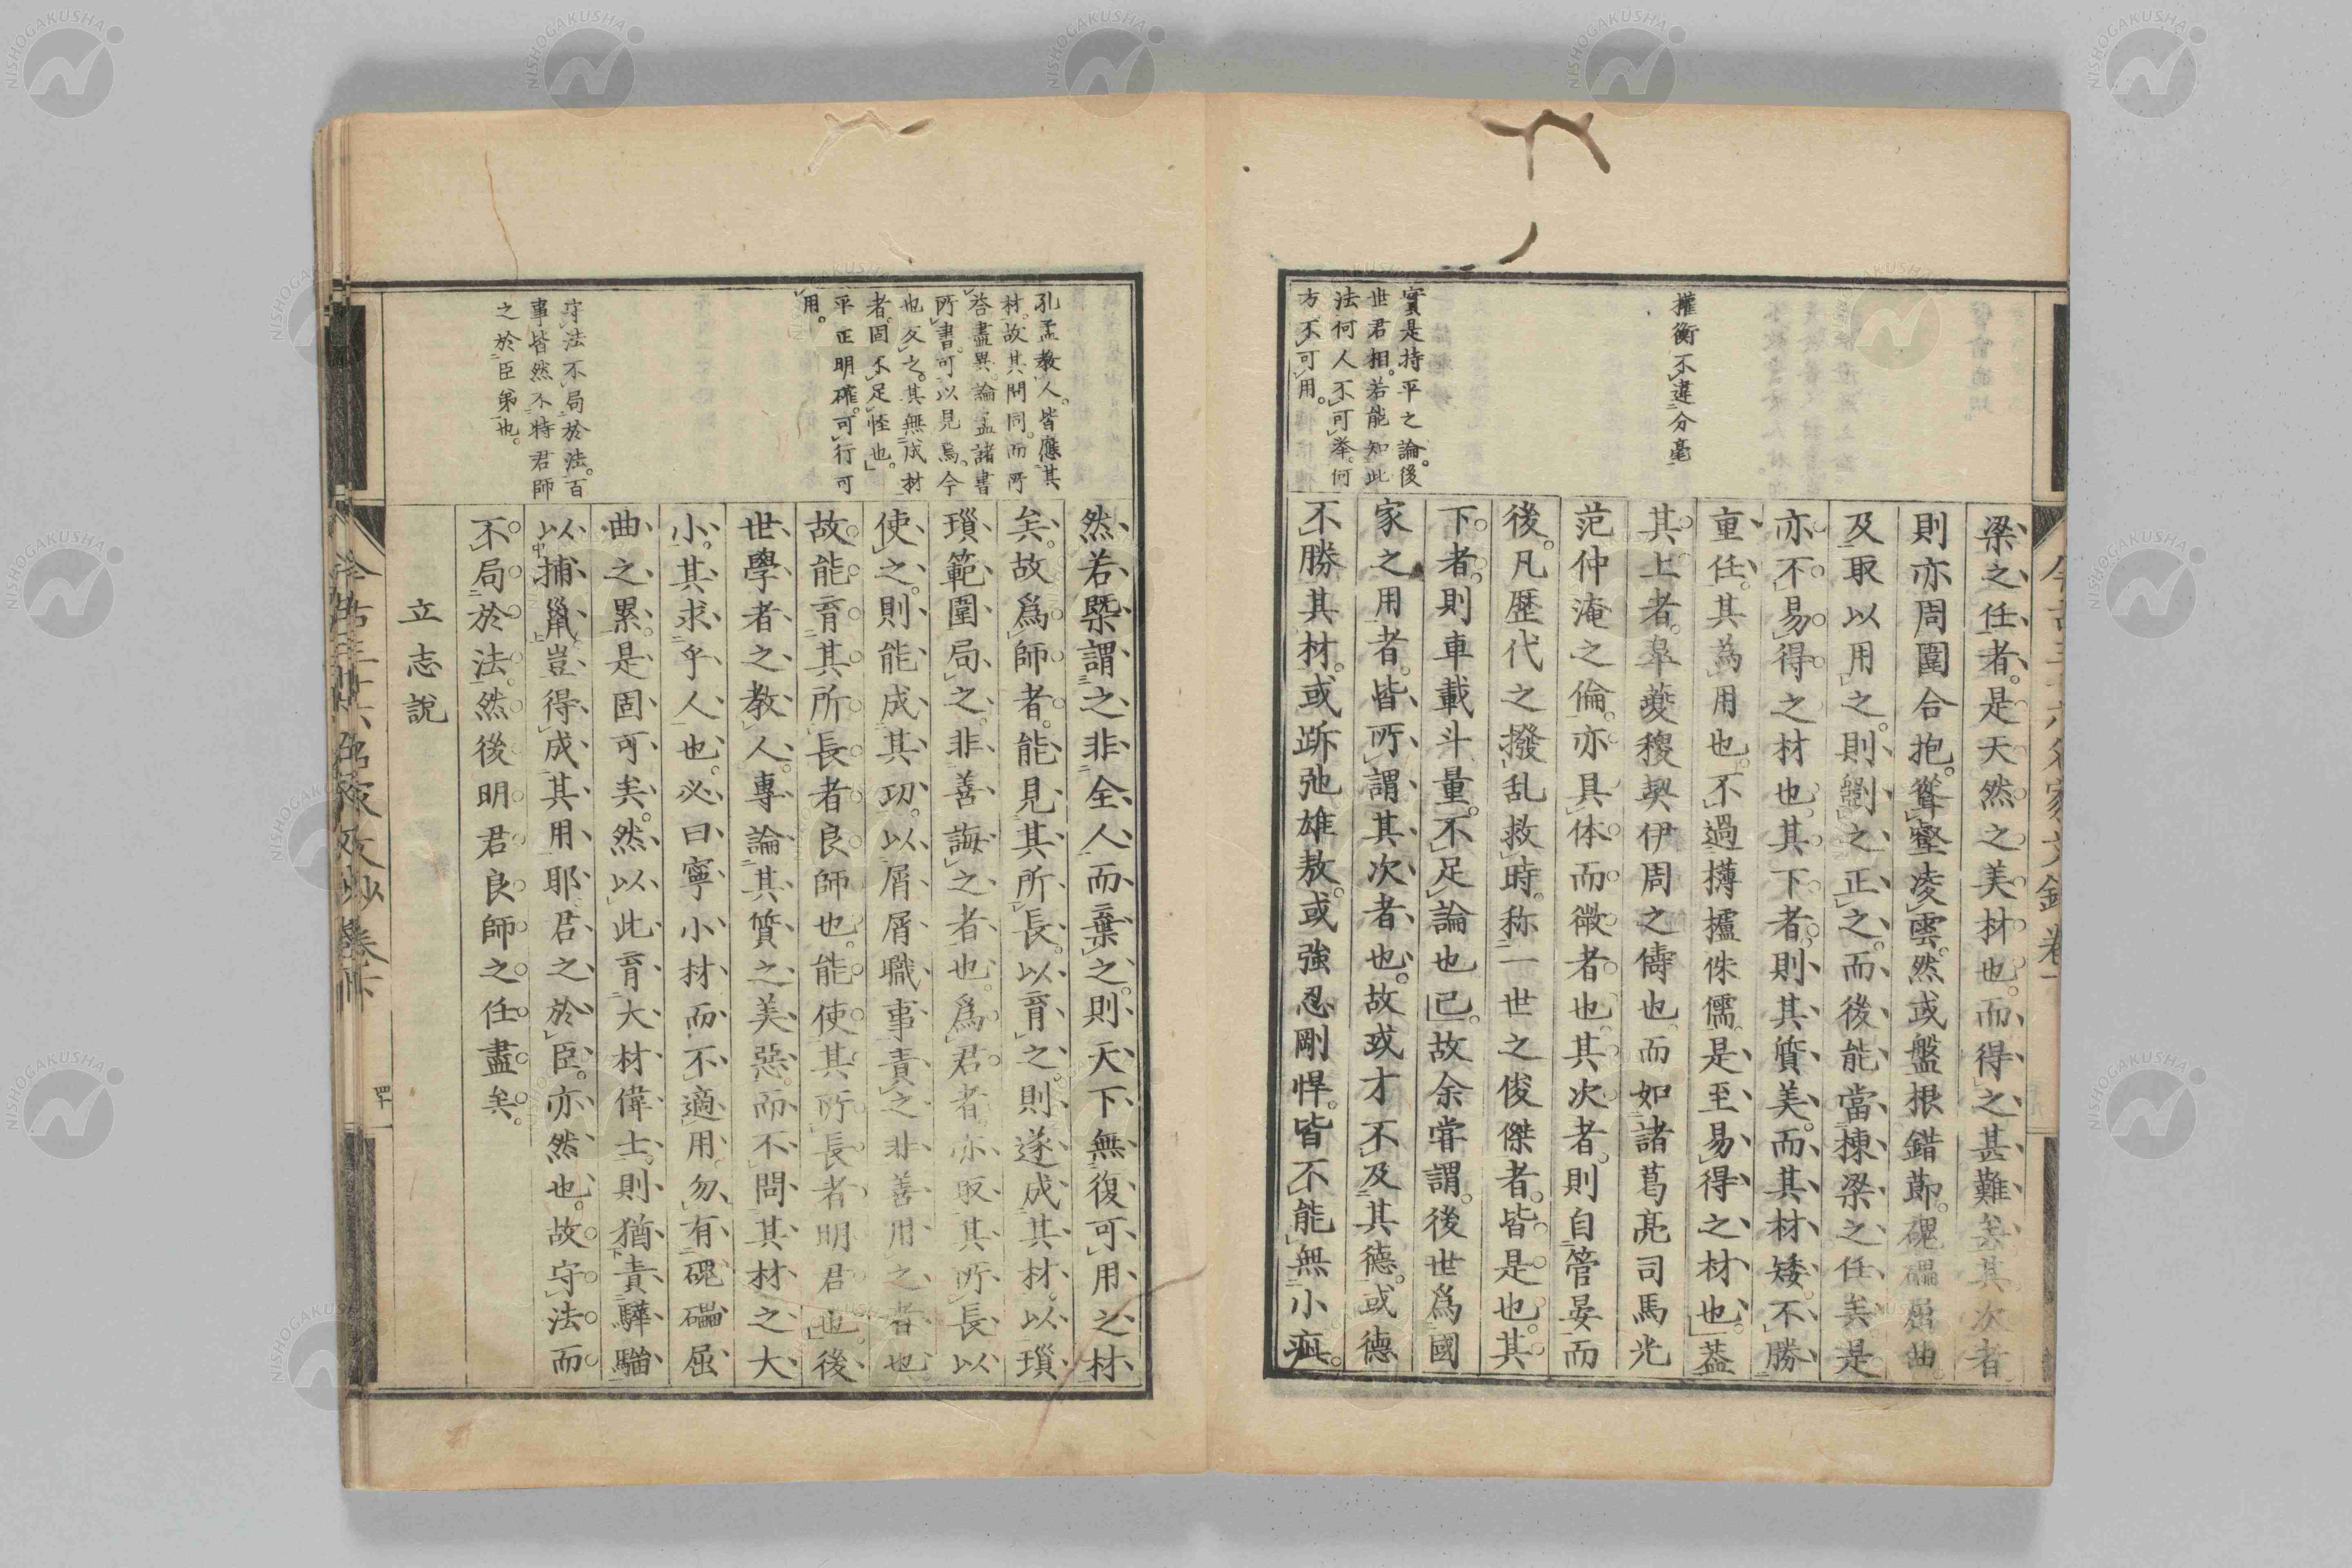 權衡不違分毫
實是持平之論。後
世君相。若能知此
法何人不可擧。何
方不可用。
梁之任者。是天然之美材也。而得之甚難矣其次者
則亦周圍合抱。聳壑凌雲。然或盤根錯節。磈礧屈曲
及取以用之。則劉之正之。而後能當棟梁之任矣是
亦不易得之材也。其下者。則其質美。而其材矮。不勝
重任。其為用也。不過欂櫨侏儒。是至易得之材也。葢
其上者。皐夔稷契伊周之儔也。而如諸葛亮司馬光
范仲淹之倫。亦具体而微者也。其次者。則自管晏而
後。凡歷代之撥乱救時。称一世之俊傑者。皆是也。其
下者。則車載斗量。不足論也已。故余甞謂。後世爲國
家之用者。皆所謂其次者也。故或才不及其德。或德
不勝其材。或跅弛雄敖。或強忍剛悍。皆不能無小疵。
孔孟教人。皆應其
材。故其問同。而所
答盡異。論孟諸書
所書。可以見焉。今
也反之。其無成材
者。固不足怪也。
平正明確。可行可
用。
守法不局於法。百
事皆然不特君師
之於臣弟也。
然若槩謂之非全人而棄之。則天下無復可用之材
矣。故爲師者。能見其所長。以育之則遂成其材。以瑣
瑣範圍局之。非善誨之者也。爲君者。亦取其所長以
使之。則能成其功。以屑屑職事責之非善用之者也
故能育其所長者良師也。能使其所長者明君也。後
世學者之教人。專論其質之美惡。而不問其材之大
小。其求乎人也。必曰寧小材而不適用。勿有磈礧屈
曲之累。是固可矣。然以此育大材偉士。則猶責驊騮
以捕鼠。豈得成其用耶。君之於臣。亦然也。故守法而
不局於法。然後明君良師之任盡矣。
立志說